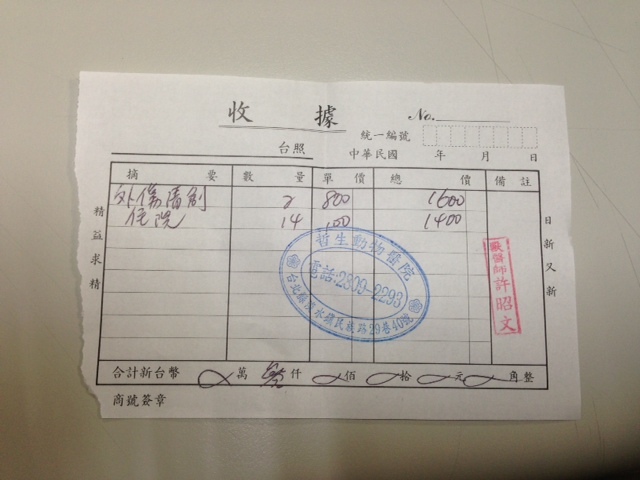 收據
No.
統一編號
台照
中華民國 年 月 日
摘要 數量 單價 總價 備註
外傷清創 2 800 1600
住院 14 100 1400
精益求精
日新又新
哲生動物醫院
電話:2809-2293
台北縣淡水鎮民族路29巷40號
獸醫師許昭文
合計新台幣 萬 叁仟 佰 拾 元 角整
商號簽章